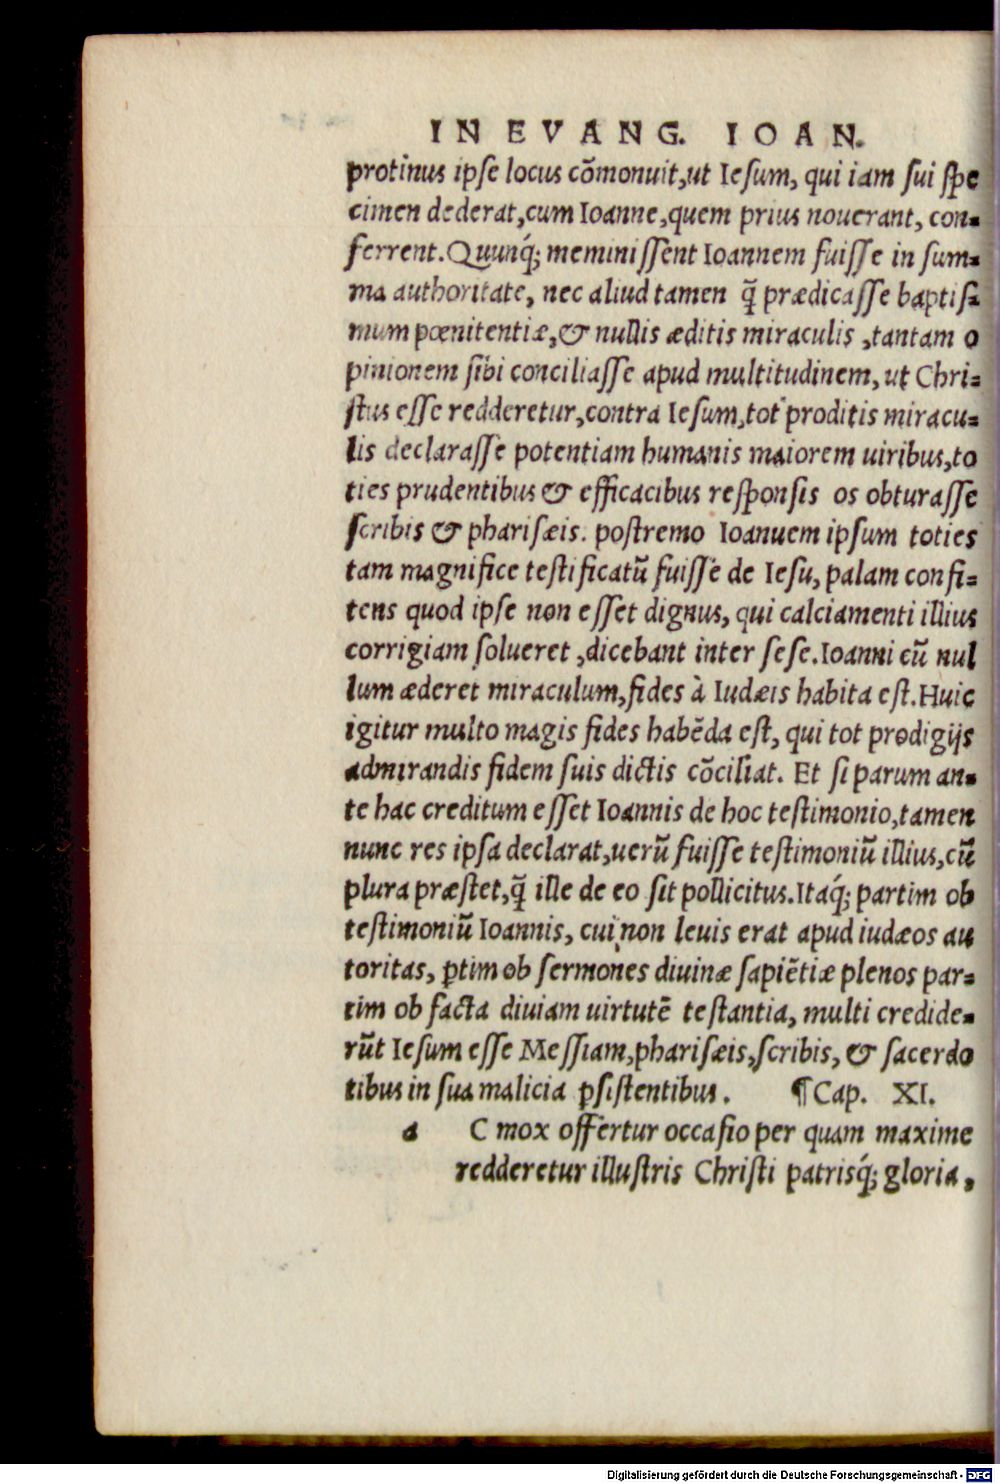 IN EVANG. IOAN.
protinus ipse locus cõmonuit,ut Iesum, qui iam sui spe
cimen dederat,cum Ioanne,quem prius nouerant, con-
ferrent.Quunq́; meminissent Ioannem fuisse in sum-
ma authoritate, nec aliud tamen q̃ prædicasse baptis-
mum pœnitentiæ,& nullis æditis miraculis ,tantam o
pinionem sibi conciliasse apud multitudinem, ut Chri-
stus esse redderetur,contra Iesum,tot proditis miracu-
lis declarasse potentiam humanis maiorem uiribus,to
ties prudentibus & efficacibus responsis os obturasse
scribis & pharisæis. postremo Ioanuem ipsum toties
tam magnifice testificatũ fuisse de Iesu, palam confi-
tens quod ipse non esset dignus, qui calciamenti illius
corrigiam solueret ,dicebant inter sese.Ioanni cũ nul
lum æderet miraculum,fides à Iudæis habita est.Huic
igitur multo magis fides habẽda est, qui tot prodigijs
admirandis fidem suis dictis cõciliat. Et si parum an-
te hac creditum esset Ioannis de hoc testimonio,tamen
nunc res ipsa declarat,uerũ fuisse testimoniũ illius,cũ
plura præstet,q̃ ille de eo sit pollicitus.Itaq́; partim ob
testimoniũ Ioannis, cui non leuis erat apud iudæos au
toritas, ꝑtim ob sermones diuinæ sapiẽtiæ plenos par-
tim ob facta diuiam uirtutẽ testantia, multi credide-
rũt Iesum esse Messiam,pharisæis,scribis, & sacerdo
tibus in sua malicia ꝑsistentibus. ¶Cap. XI.
a C mox offertur occasio per quam maxime
redderetur illustris Christi patrisq́; gloria,
Digitalisierung gefördert durch die Deutsche Forschungsgemeinschaft - DFG